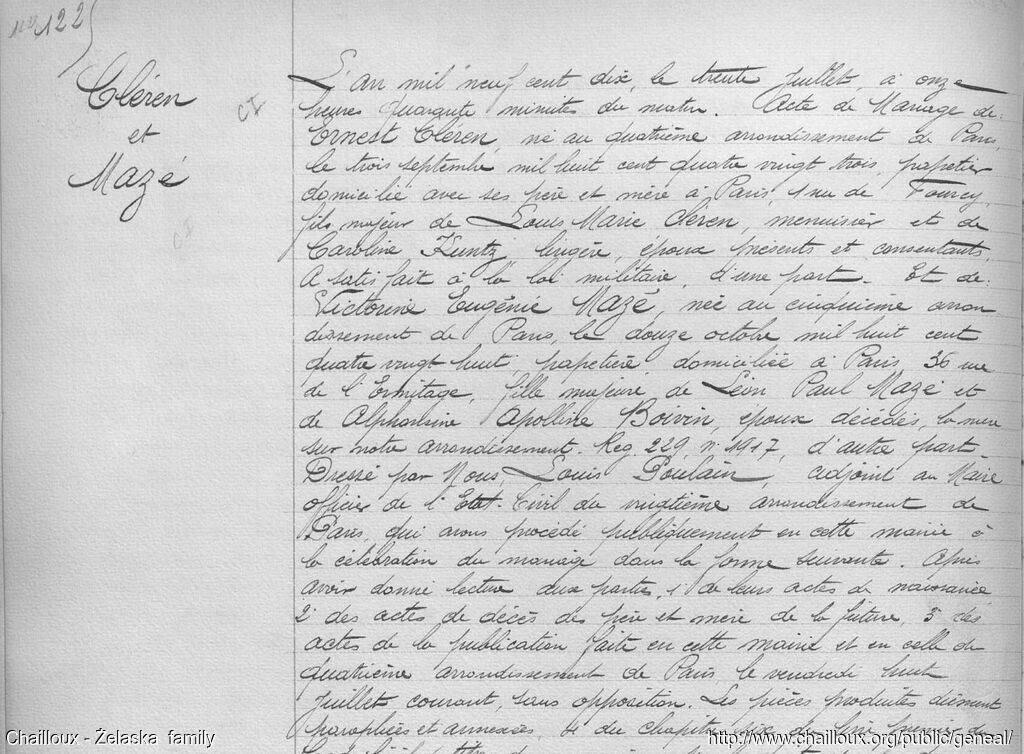 122
Cléren
et
Mazé
CI
L'an mil neuf cent dix, le trente Juillet, à onze
heures quarante minutes du matin. Acte de Mariage de:
Ernest Cleren, né au quatrième arrondissement de Paris,
le trois septembre mil huit cent quatre vingt trois, papetier
domicilié avec ses père et mère à Paris, 1 rue de Fourcy,
fils majeur de Louis Marie Cleren, menuisier et de
Caroline Kuntz, lingère, époux présents et consentants,
A satisfait à la loi militaire, d'une part. Et de:
Victorine Eugénie Mazé, née au cinquième arron
dissement de Paris, le douze octobre mil huit cent
quatre vingt huit, papetière, domiciliée à Paris, 36 rue
de l'Ermitage, fille majeure de Léon Paul Mazé et
de Alphonsine Apolline Boivin, époux décédés, la mère
sur notre arrondissement. Reg. 229, n° 1917, d'autre part_
Dressé par Nous, Louis Poulain, adjoint au Maire
officier de l'Etat-Civil du vingtième arrondissement de
Paris, qui avons procédé publiquement en cette mairie à
la célébration du mariage dans la forme suivante. Après
avoir donné lecture aux parties, 1° de leurs actes de naissance
2° des actes de décès des père et mère de la future, 3° des
actes de la publication faite en cette mairie et en celle du
quatrième arrondissement de Paris, le vendredi huit
Juillet courant, sans opposition. Les pièces produites dûment
paraphées et annexées, 4° du chapitre six
Chailloux - Żelaska family
http://www.chailloux.org/public/geneall/